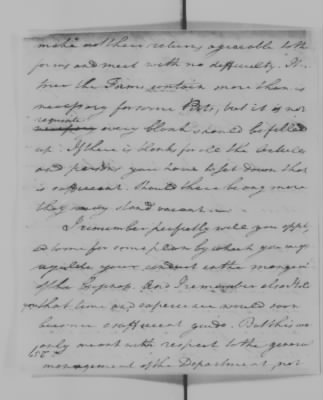 make out their returns agreeable to the
forms and meet with no difficulty. It is
true the Forms contain more than is
necessary for some Posts, but it is not
requisite
necessary every blank should be filled
up. If there is blanks for all the articles
and persons you have to set down that
is sufficient. Should there be any more
they may stand vacant.
I remember perfectly well you appli
ed to me for some plan by which you mig
regulate your conduct in the manegem
of the Hospital. And I remember also I told
you that time and experience would soon
become a sufficient guide. But this was
only meant with respect to the general
management of the Department, not